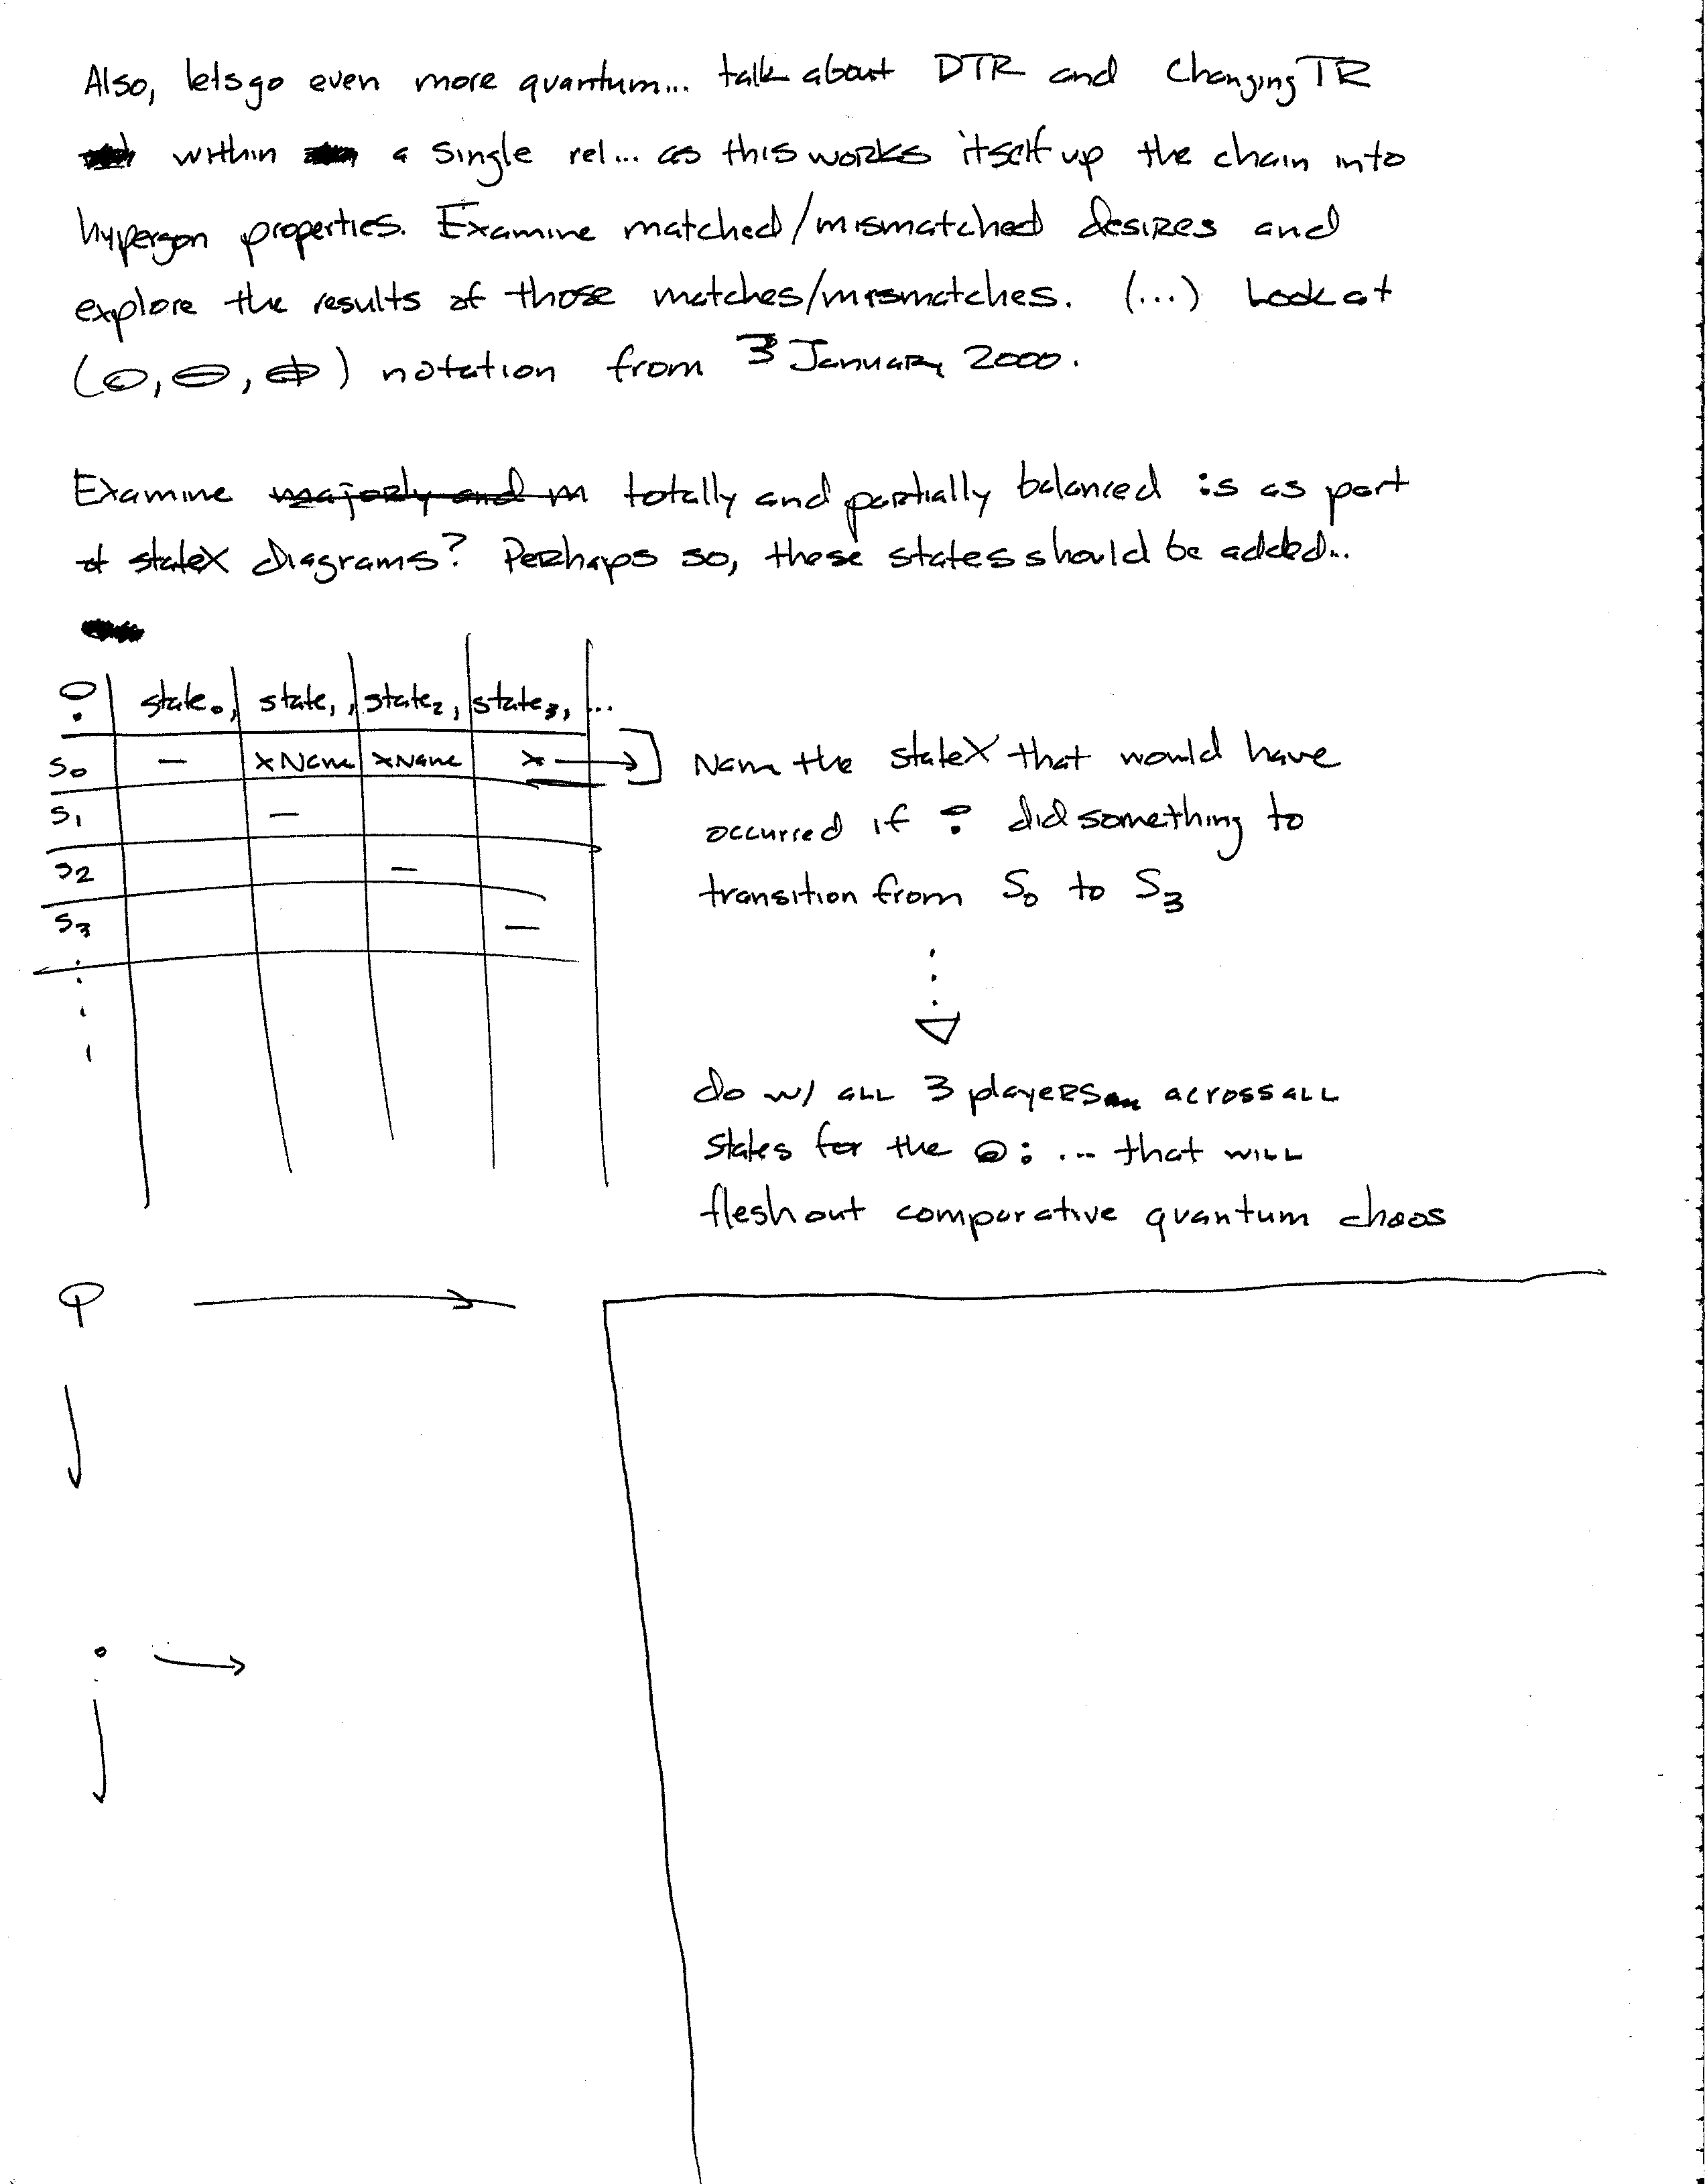 Also, lets go even more quantum... talk about DTR and Changing TR
within a single rel... as this works itself up the chain into
hypergon properties. Examine matched/mismatched desires and
explore the results of those matches/mismatches. (...) Look at
(⊙, ⊖, ⌽) notation from 3 January 2000.
Examine majorly and m totally and partially balanced :s as part
of stateX diagrams? Perhaps so, these states should be added...
state₀, state₁, state₂, state₃, ...
S₀ — xName xName x
S₁ —
S₂ —
S₃ —
Name the stateX that would have
occurred if did something to
transition from S₀ to S₃
do w/ ALL 3 players across ALL
states for the : ... that will
flesh out comparative quantum chaos